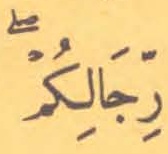 رِّجَالِكُمْ ۖ